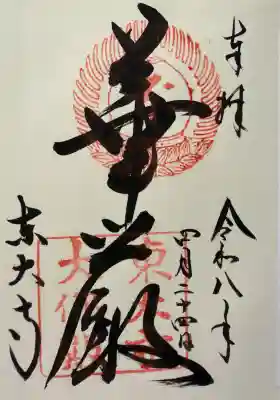 奉拝
令和八年
四月二十四日
華嚴
東大寺
東大寺
大佛殿